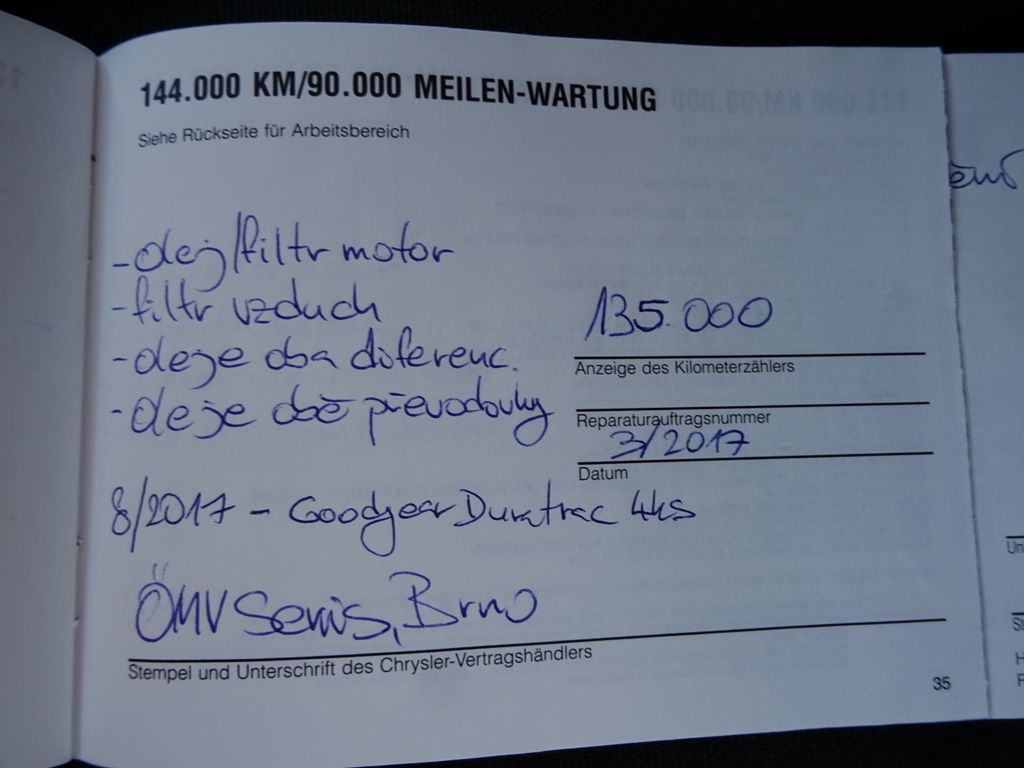 144.000 KM/90.000 MEILEN-WARTUNG
Siehe Rückseite für Arbeitsbereich
- olej/filtr motor
- filtr vzduch
- oleje oba diferenc.
- oleje obě převodovky
135.000
Anzeige des Kilometerzählers
Reparaturauftragsnummer
3/2017
Datum
8/2017 - Goodyear Duratrac 4ks
ÖMV Servis, Brno
Stempel und Unterschrift des Chrysler-Vertragshändlers
35